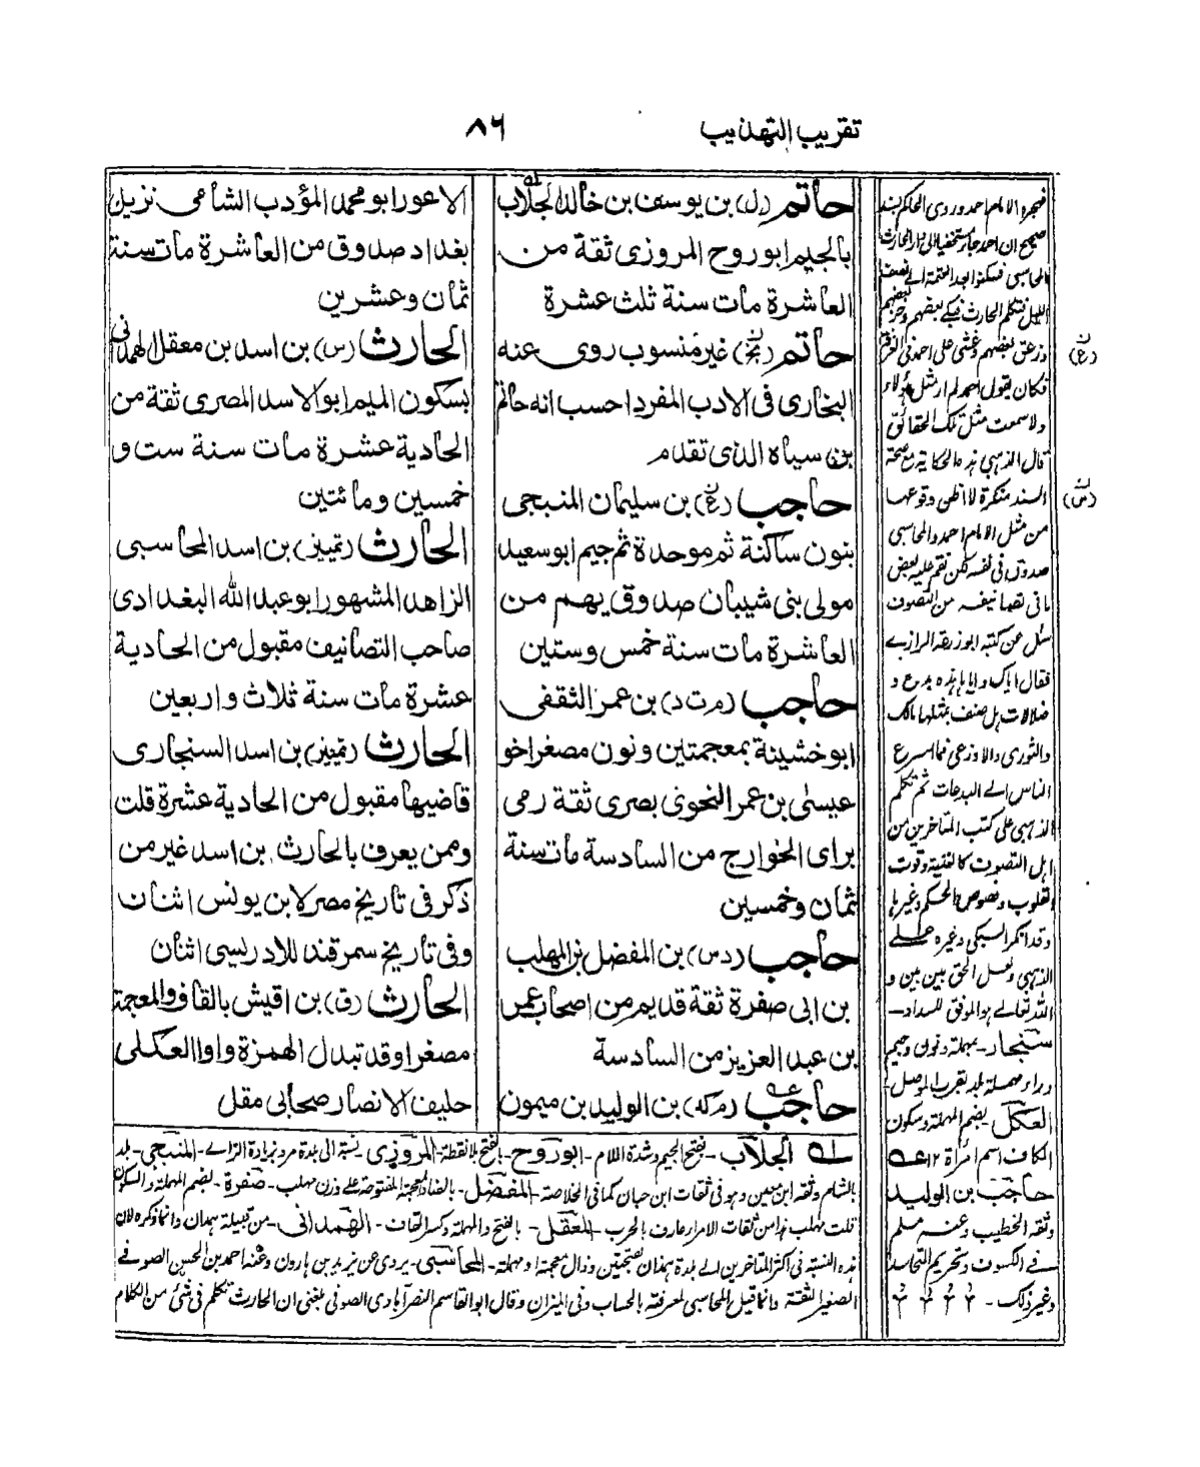 تقريب التهذيب
٨٦
حاتم (ل) بن يوسف بن خالد الجلاب
بالجيم ابوروح المروزى ثقة من
العاشرة مات سنة ثلث عشرة
حاتم (بخ) غير منسوب روى عنه
البخارى فى الادب المفرد احسب انه حاتم
بن سياه الذى تقدم
حاجب بن سليمان المنبجى
بنون ساكنة ثم موحدة ثم جيم ابو سعيد
مولى بنى شيبان صدوق يهم من
العاشرة مات سنة خمس وستين
حاجب (م ت د) بن عمر الثقفى
ابو خشينة بمعجمتين ونون مصغر اخو
عيسى بن عمر النحوى بصرى ثقة رمى
براى الخوارج من السادسة مات سنة
ثمان وخمسين
حاجب (د س) بن المفضل بن المهلب
بن ابى صفرة ثقة قديم من اصحاب عمر
بن عبد العزيز من السادسة
حاجب (م كد) بن الوليد بن ميمون
الاعور ابو محمد المؤدب الشامى نزيل
بغداد صدوق من العاشرة مات سنة
ثمان وعشرين
الحارث (س) بن اسد بن معقل الهمدانى
بسكون الميم ابو الاسد المصرى ثقة من
الحادية عشرة مات سنة ست و
خمسين ومائتين
الحارث (تمييز) بن اسد المحاسبى
الزاهد المشهور ابو عبد الله البغدادى
صاحب التصانيف مقبول من الحادية
عشرة مات سنة ثلاث واربعين
الحارث (تمييز) بن اسد السنجارى
قاضيها مقبول من الحادية عشرة قلت
وممن يعرف بالحارث بن اسد غير من
ذكر فى تاريخ مصر لابن يونس اثنان
وفى تاريخ سمرقند للادريسى اثنان
الحارث (ق) بن اقيش بالقاف والمعجمة
مصغرا وقد تبدل الهمزة واوا العكلى
حليف الانصار صحابى مقل
الجلاب - بفتح الجيم وشدة اللام - ابوروح - بالفتح بلا نقطة - المروزى نسبة الى بلدة مرو بزيادة الزاى - المنبجى - بلد
بالشام وثقه ابن معين وهو فى ثقات ابن حبان كما فى الخلاصة - المفضل - بالضاد المعجمة المفتوحة على وزن مهلب - صفرة - بضم المهملة والسكون
قلت مهلب هذا من ثقات الامراء عارف بالحرب - المعقل - بالفتح والمهملة وكسر القاف - الهمدانى - من قبيلة همدان وانما ذكره لان
هذه النسبة فى اكثر المتاخرين الى بلدة همذان بفتحتين وذال معجمة ومهملة - المحاسبى - يروى عن يزيد بن هارون وعنه احمد بن الحسن الصوفى
الصغير الثقة وانما قيل المحاسبى لمعرفته بالحساب وفى الميزان وقال ابو القاسم النصراباذى الصوفى بلغنى ان الحارث تكلم فى شئ من الكلام
فهجره الامام احمد وروى الحاكم بسند
صحيح ان احمد جاء متخفيا الى دار الحارث
المحاسبى فسكتوا بعد العتمة الى نصف
الليل فتكلم الحارث فبكى بعضهم
وزعق بعضهم وغشى على احمد فى الغرفة
فكان يقول احمد لم ار مثل هؤلاء
ولا سمعت مثل تلك الحقائق
قال الذهبى هذه الحكاية مع صحة
السند منكرة لا اظن وقوعها
من مثل الامام احمد والمحاسبى
صدوق فى نفسه لكن نقم عليه بعض
ما فى تصانيفه من التصوف
سئل عن كتبه ابو زرعة الرازى
فقال اياك واياها هذه بدع و
ضلالات هل صنف بمثلها مالك
والثورى والاوزاعى فما اسرع
الناس الى البدعات ثم تكلم
الذهبى على كتب المتاخرين من
اهل التصوف كالغنية وقوت
القلوب وفصوص الحكم وغيرها
وقد انكر السبكى وغيره على
الذهبى ولعل الحق بين بين و
الله تعالى هو الموفق للسداد -
سنجار - بمهملة ونون وجيم
وراء مهملة بلد بقرب الموصل -
العكل - بضم المهملة وسكون
الكاف اسم امرأة ١٢
حاجب بن الوليد
وثقه الخطيب وعنه مسلم
فى الكسوف وتحريم التحاسد
وغير ذلك -